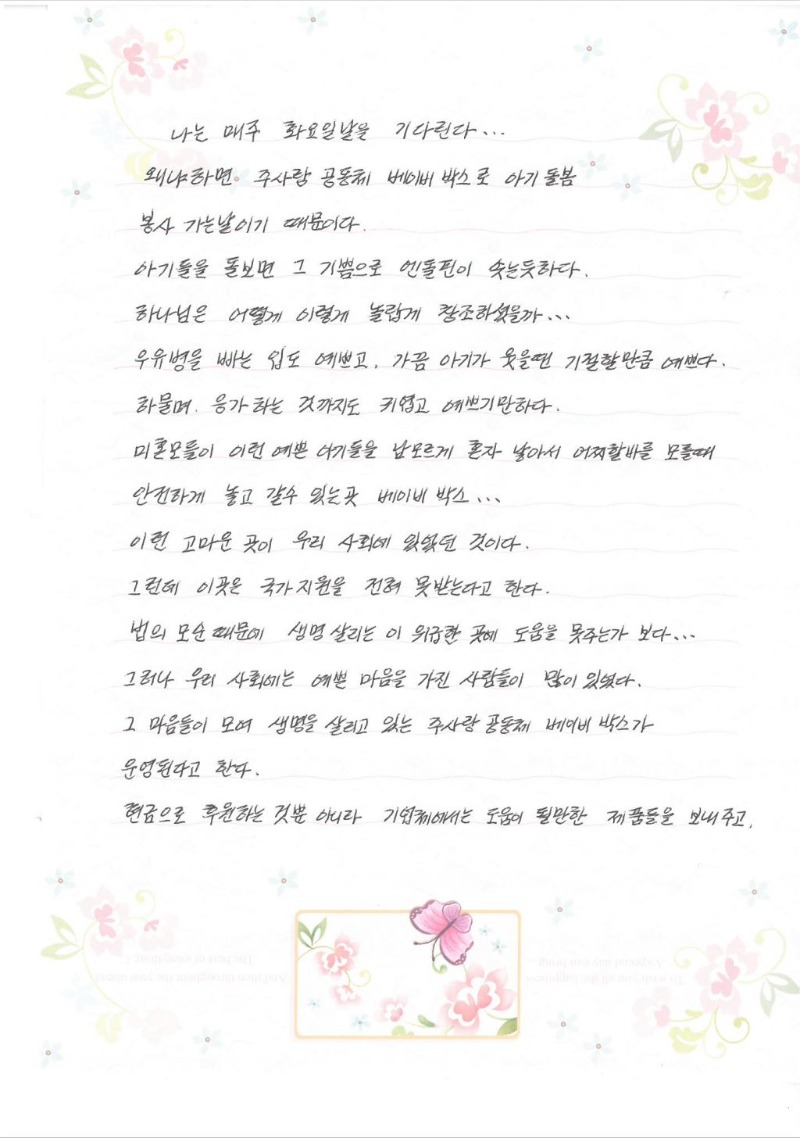 나는 매주 화요일날을 기다린다...
왜냐하면. 주사랑 공동체 베이비 박스로 아기 돌봄
봉사 가는날이기 때문이다.
아기들을 돌보면 그 기쁨으로 엔돌핀이 솟는듯하다.
하나님은 어떻게 이렇게 놀랍게 창조하셨을까...
우유병을 빠는 입도 예쁘고, 가끔 아기가 웃을땐 기절할만큼 예쁘다.
하물며. 응가 하는 것까지도 귀엽고 예쁘기만하다.
미혼모들이 이런 예쁜 아기들을 남모르게 혼자 낳아서 어찌할바를 모를때
안전하게 놓고 갈수 있는곳 베이비 박스...
이런 고마운 곳이 우리 사회에 있었던 것이다.
그런데 이곳은 국가지원을 전혀 못받는다고 한다.
법의 모순 때문에 생명 살리는 이 위급한 곳에 도움을 못주는가 보다...
그러나 우리 사회에는 예쁜 마음을 가진 사람들이 많이 있었다.
그 마음들이 모여 생명을 살리고 있는 주사랑 공동체 베이비 박스가
운영된다고 한다.
현금으로 후원하는 것뿐 아니라 기업체에서는 도움이 될만한 제품들을 보내주고,